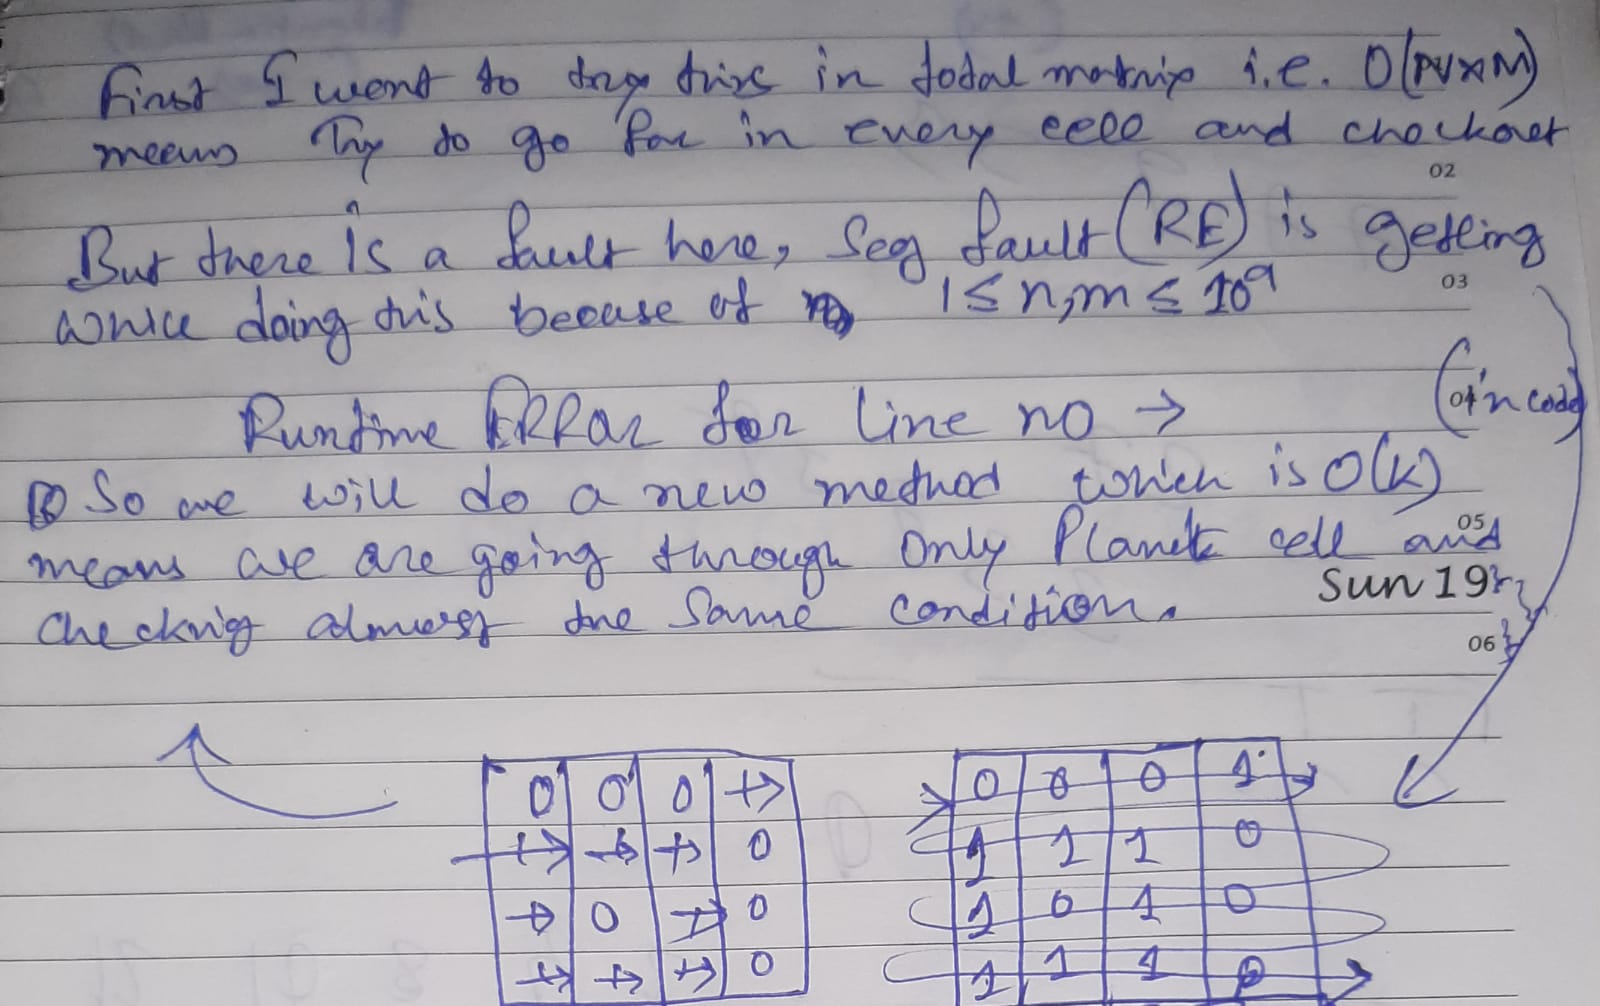 First I went to try this in total matrix i.e. O(NXM)
means Try to go for in every cell and checkout
02
But there is a fault here, Seg fault (RE) is getting
03
while doing this because of 1 ≤ n,m ≤ 10⁹
Runtime ERRor for line no → (in code)
04
So we will do a new method which is O(K)
05
means we are going through Only Planet cell and
Sun 19
checking almost the same condition.
06
0 0 0 →
→ → → 0
→ 0 → 0
→ → → 0
0 0 0 1
1 1 1 0
1 0 1 0
1 1 1 0